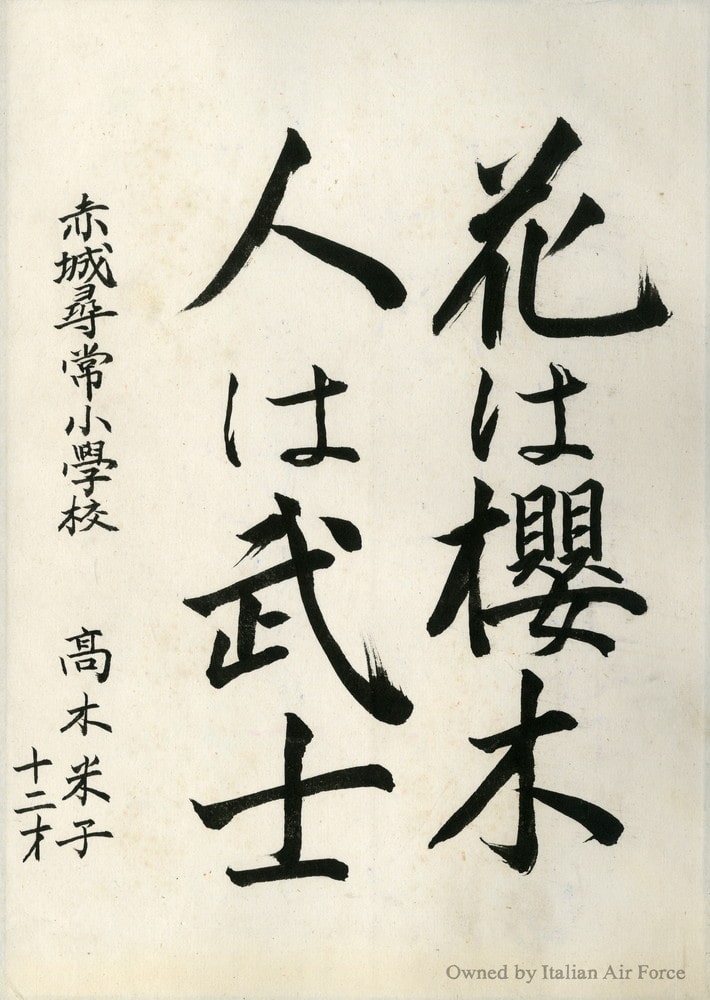 花は櫻木
人は武士
赤城尋常小學校 髙木米子
十二才
Owned by Italian Air Force